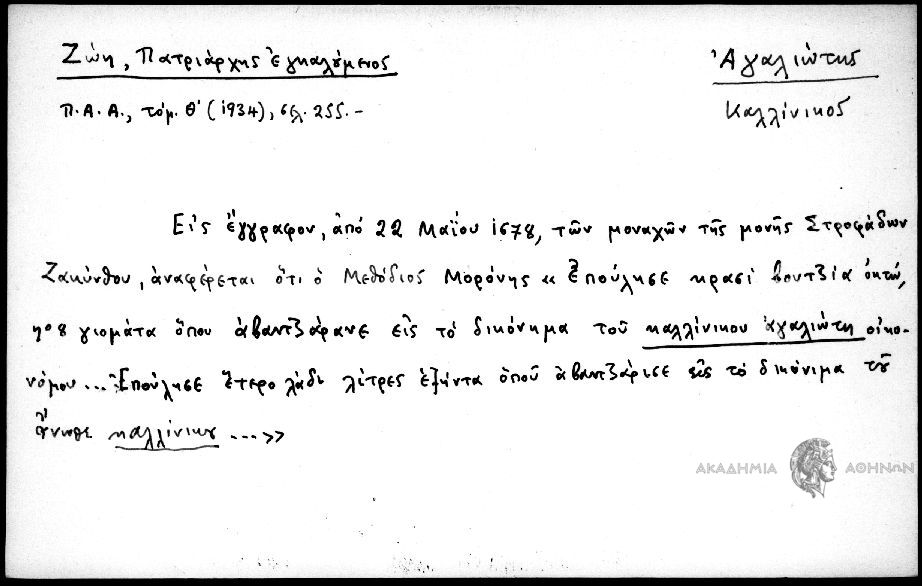 Ζώη, Πατριάρχης ἐγκαλούμενος
Ἀγαλιώτης
Π.Α.Α., τόμ. Θ' (1934), σελ. 255.-
Καλλίνικος
Εἰς ἔγγραφον, ἀπό 22 Μαΐου 1678, τῶν μοναχῶν τῆς μονῆς Στροφάδων
Ζακύνθου, ἀναφέρεται ὅτι ὁ Μεθόδιος Μορόνης «Ἐπούλησε κρασί βουτζία ὀκτώ,
8 γιομάτα ὅπου ἀβαντζάρανε εἰς τό δικόνημα τοῦ καλλίνικου ἀγαλιώτη οἰκο-
νόμου... Ἐπούλησε ἕτερο λάδι λίτρες ἑξήντα ὁποῦ ἀβαντζάρισε εἰς τό δικόνιμα τοῦ
ἄνωθε καλλίνικου ...»
ΑΚΑΔΗΜΙΑ ΑΘΗΝΩΝ